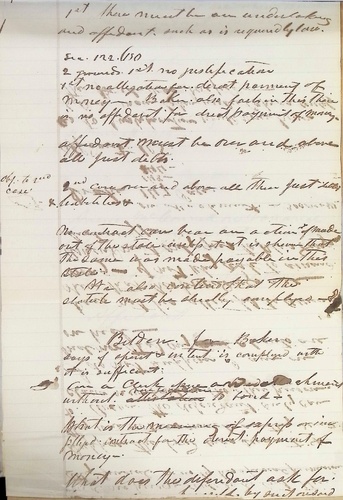 1st there must be an undertaking
and affidavit such as is required by law.
Sec. 122. 650
2 grounds. 1st no justification
1st no allegation for direct payment of
money - Baker also fails in this there
is no affidavit for direct payment of money
affidavit must be over and above
all just debts.
Obj. to 2nd
case
2nd case over and above all their just debts
& liabilities
No contract can bear an action if made
out of the state unless it is shown that
the same was made payable in this
State.
He also contends that the
statute must be strictly complied
for Baker
says if spirit & intent is complied with
it is sufficient.
Can a Clerk
without to bond
What is the meaning of express or im
plied contract for the direct payment of
money -
What does the defendant ask for